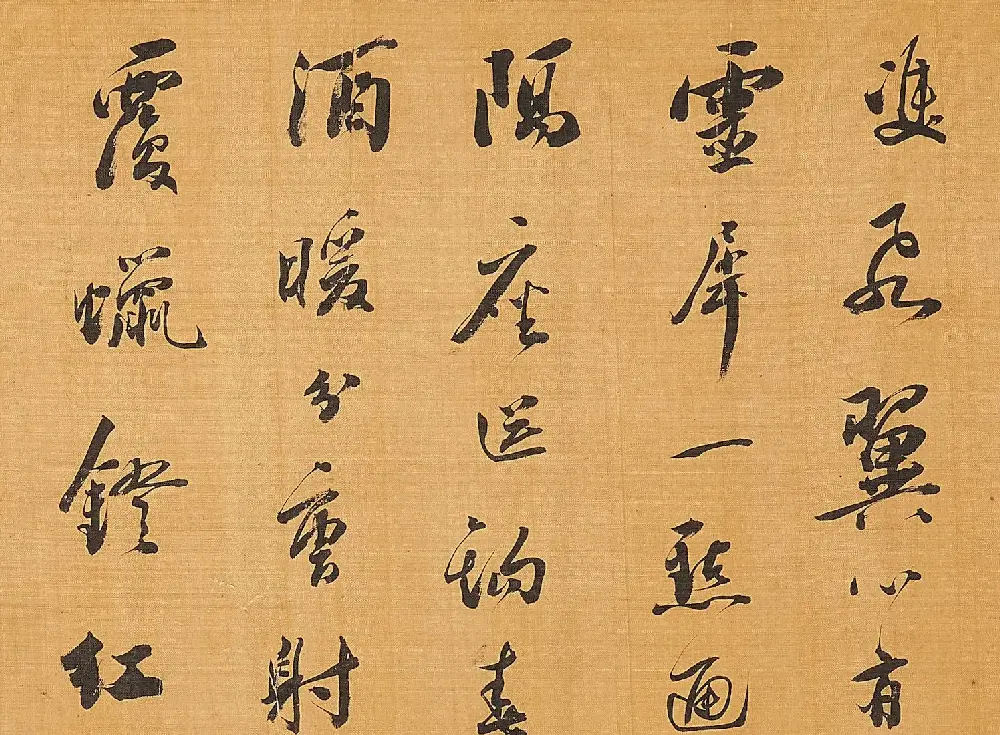 雙飛翼心有
靈犀一點通
隔座送鈎春
酒暖分曹射
覆蠟鐙紅